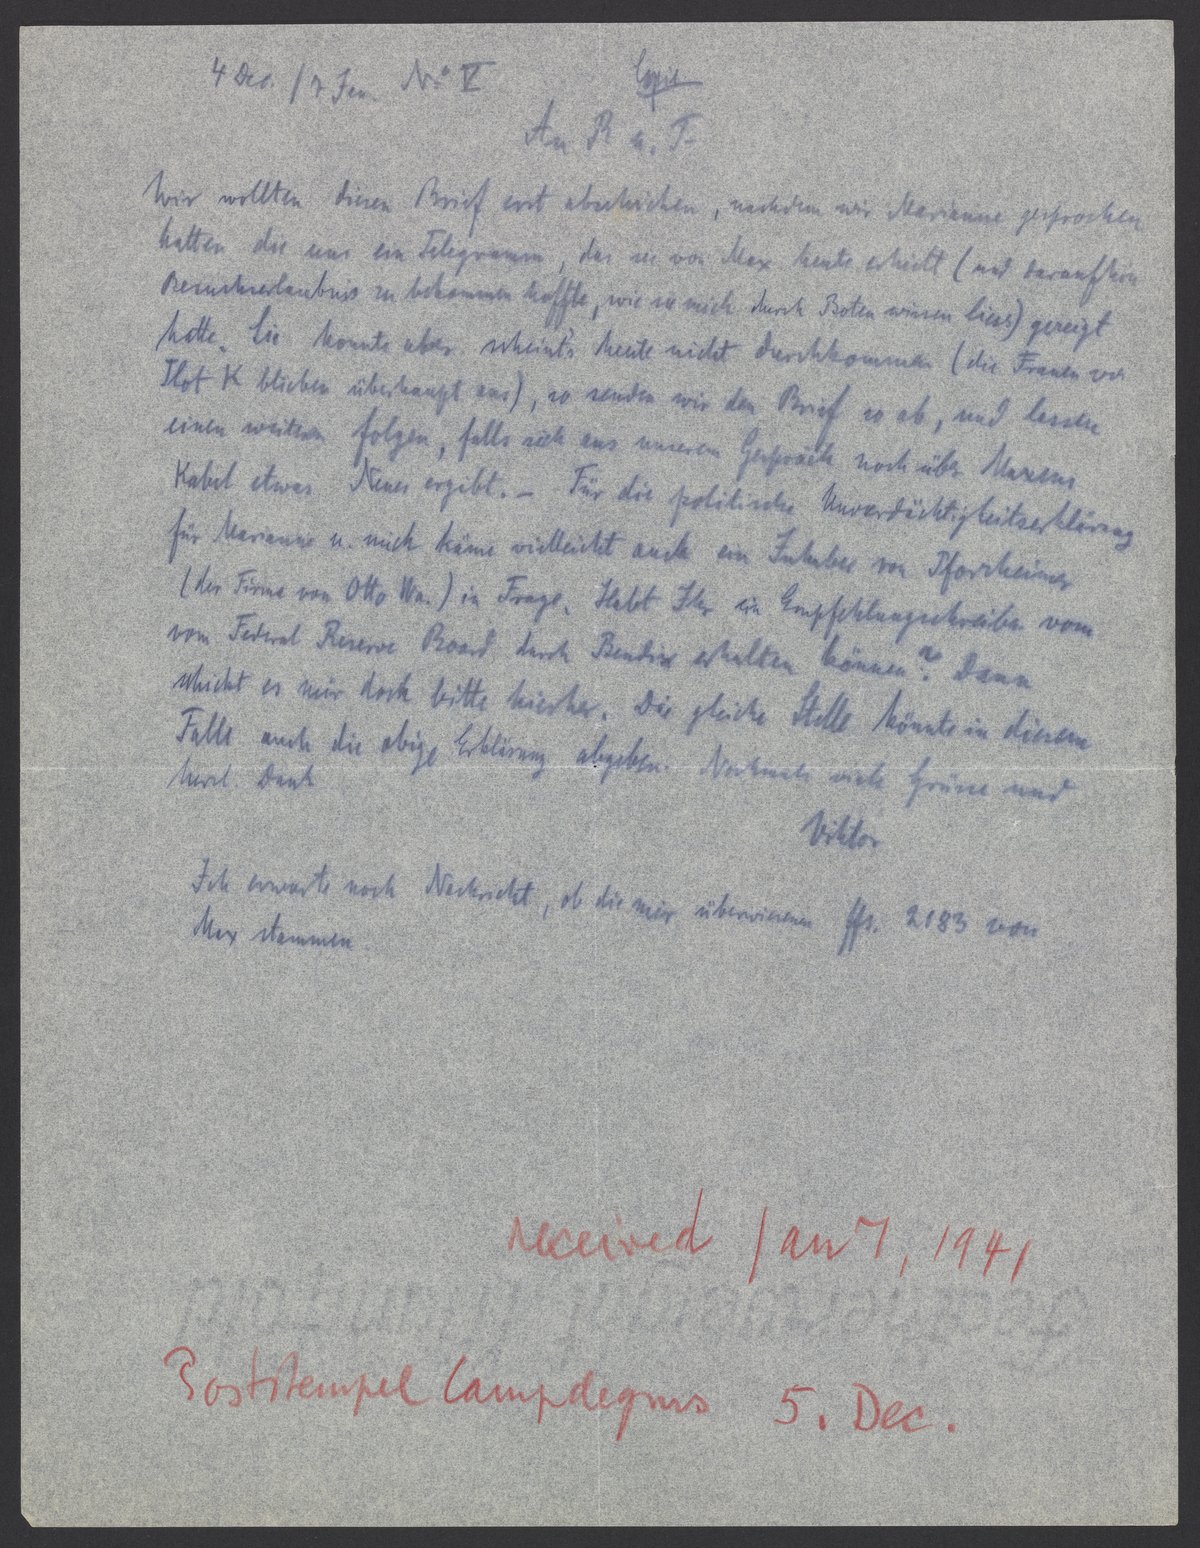 4 Dec. / 7 Jan. No V Copie
An R u. F
Wir wollten diesen Brief erst abschicken, nachdem wir Marianne gesprochen
hatten die uns ein Telegramm, das sie von Max heute erhielt (und daraufhin
Besuchserlaubnis zu bekommen hoffte, wie sie mich durch Boten wissen liess) gezeigt
hatte. Sie konnte aber scheint's heute nicht durchkommen (die Frauen von
Ilot K blieben überhaupt aus), so senden wir den Brief so ab, und lassen
einen weitern folgen, falls sich aus unserem Gespräch noch über Maxens
Kabel etwas Neues ergibt. – Für die politische Unverdächtigkeitserklärung
für Marianne u. mich käme vielleicht auch ein Inhaber von Pforzheimer
(der Firma von Otto Wa.) in Frage. Habt Ihr ein Empfehlungsschreiben vom
vom Federal Reserve Board durch Bendix erhalten können? Dann
schickt es mir doch bitte hierher. Die gleiche Stelle könnte in diesem
Falle auch die obige Erklärung abgeben. Nochmals viele Grüsse und
herzl. Dank
Viktor
Ich erwarte noch Nachricht, ob die mir überwiesenen ffs. 2183 von
Max stammen.
received Jan 7, 1941
Poststempel Campdegurs 5. Dec.